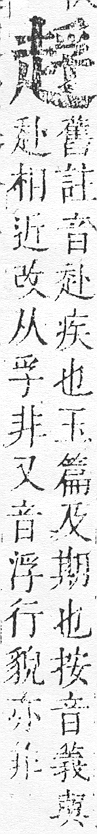 舊註音赴疾也玉篇及期也按音義與
赴相近改从孚非又音浮行貌亦非